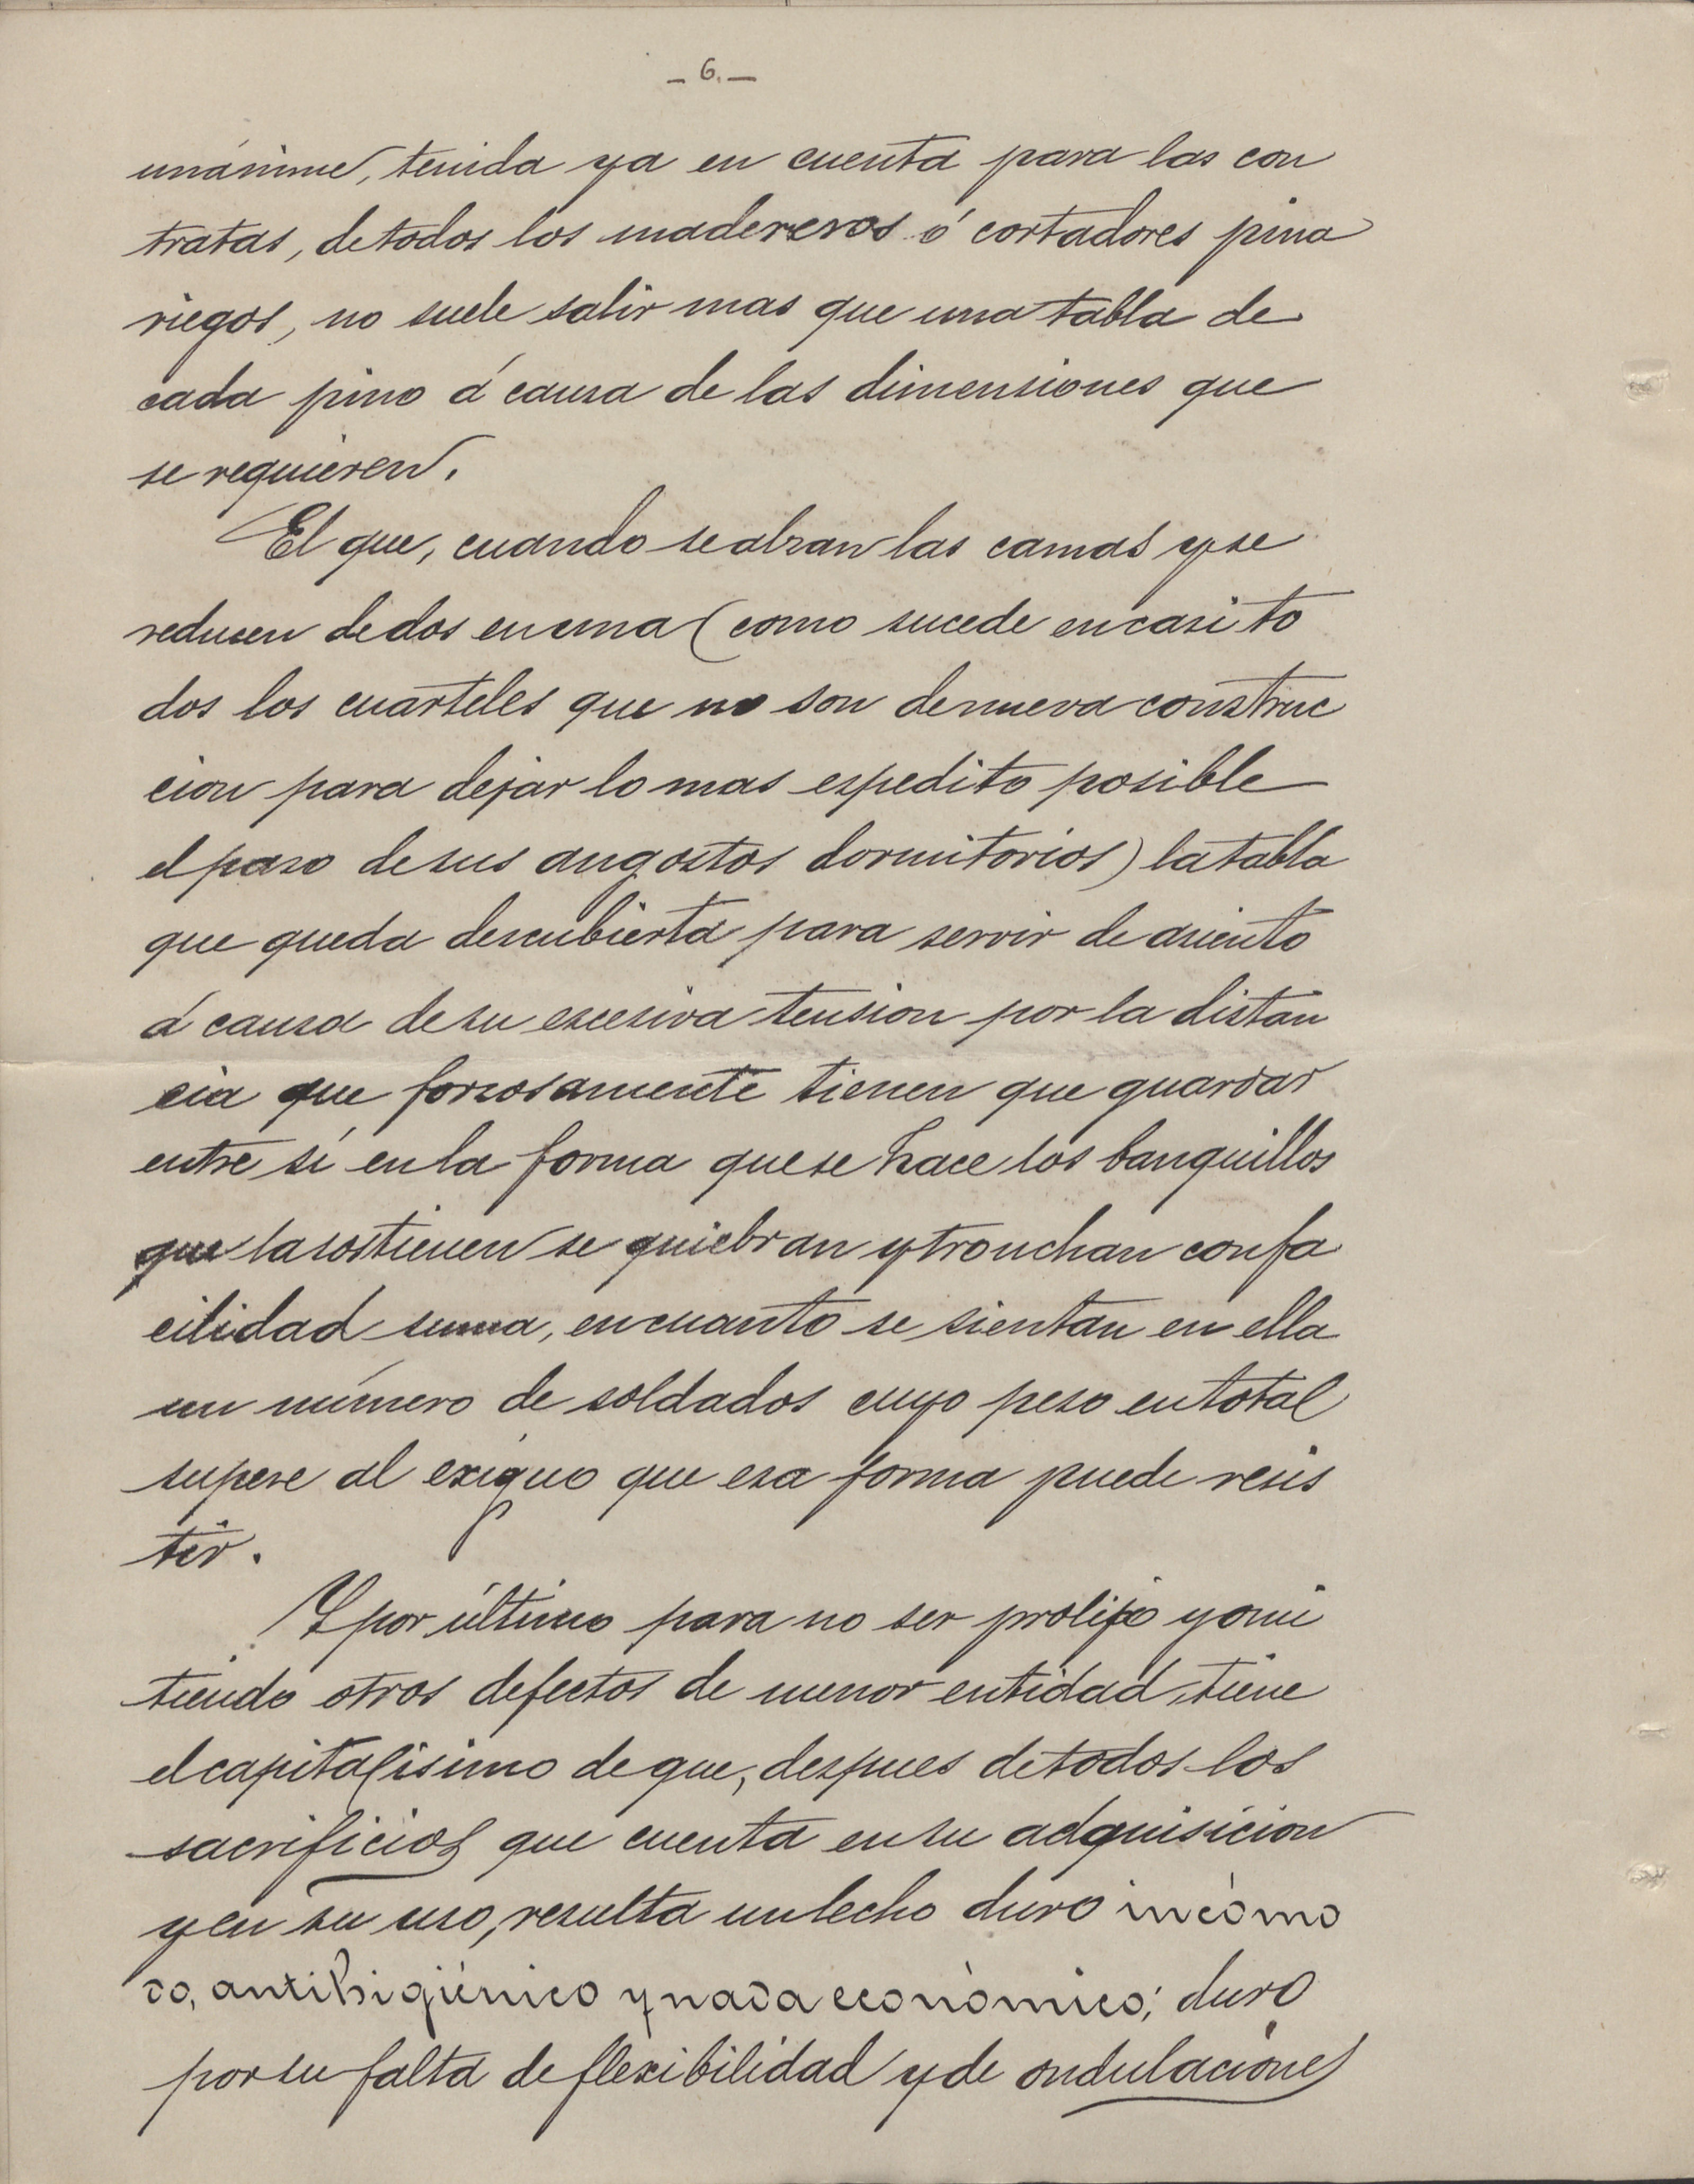 - 6. -
unánime, tenida ya en cuenta para las con
tratas, de todos los madereros ó cortadores pina
riegos, no suele salir mas que una tabla de
cada pino á causa de las dimensiones que
se requieren.
El que, cuando se alzan las camas y se
reducen de dos en una (como sucede en casi to
dos los cuarteles que no son de nueva construc
cion para dejar lo mas espedito posible
el paso de sus angostos dormitorios) la tabla
que queda descubierta para servir de asiento
á causa de su escesiva tension por la distan
cia que forzosamente tienen que guardar
entre sí en la forma que se hace los banquillos
que la sostienen se quiebran y tronchan con fa
cilidad suma, en cuanto se sientan en ella
un número de soldados cuyo peso en total
supere al exiguo que esa forma puede resis
tir.
Y por último para no ser prolijo y omi
tiendo otros defectos de menor entidad, tiene
el capitalisimo de que, despues de todos los
sacrificios que cuenta en su adquisicion
y en su uso, resulta un lecho duro incómo
do, antihigiénico y nada económico; duro
por su falta de flexibilidad y de ondulaciones